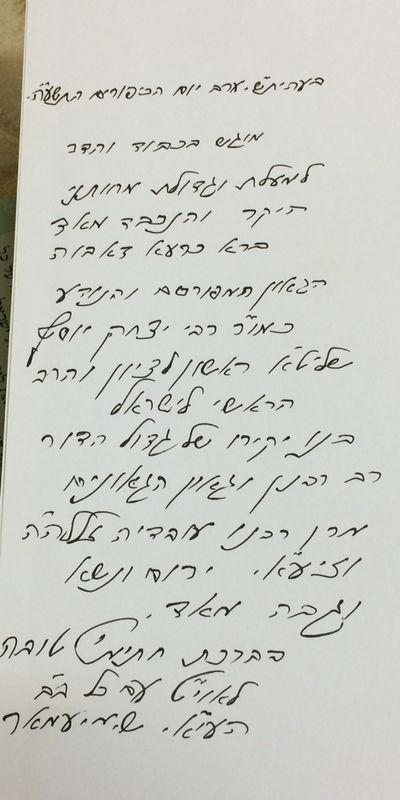 בעהית"ש. ערב יום הכיפורים התשע"ה.
מוגש בכבוד והדר
למעלת וגדולת מחותני
היקר והנכבד מאד
ברא כרעא דאבוה
הגאון המפורסם והנודע
כמו"ר רבי יצחק יוסף
שליט"א ראשון לציון והרב
הראשי לישראל
בנו יקירו של גדול הדור
רב רבנן וגאון הגאונים
מרן רבנו עובדיה זללה"ה
וזיע"א. ירום ונשא
וגבה מאד.
בברכת חתימה טובה
לאוי"ט עם כל ב"ב
הע"א.